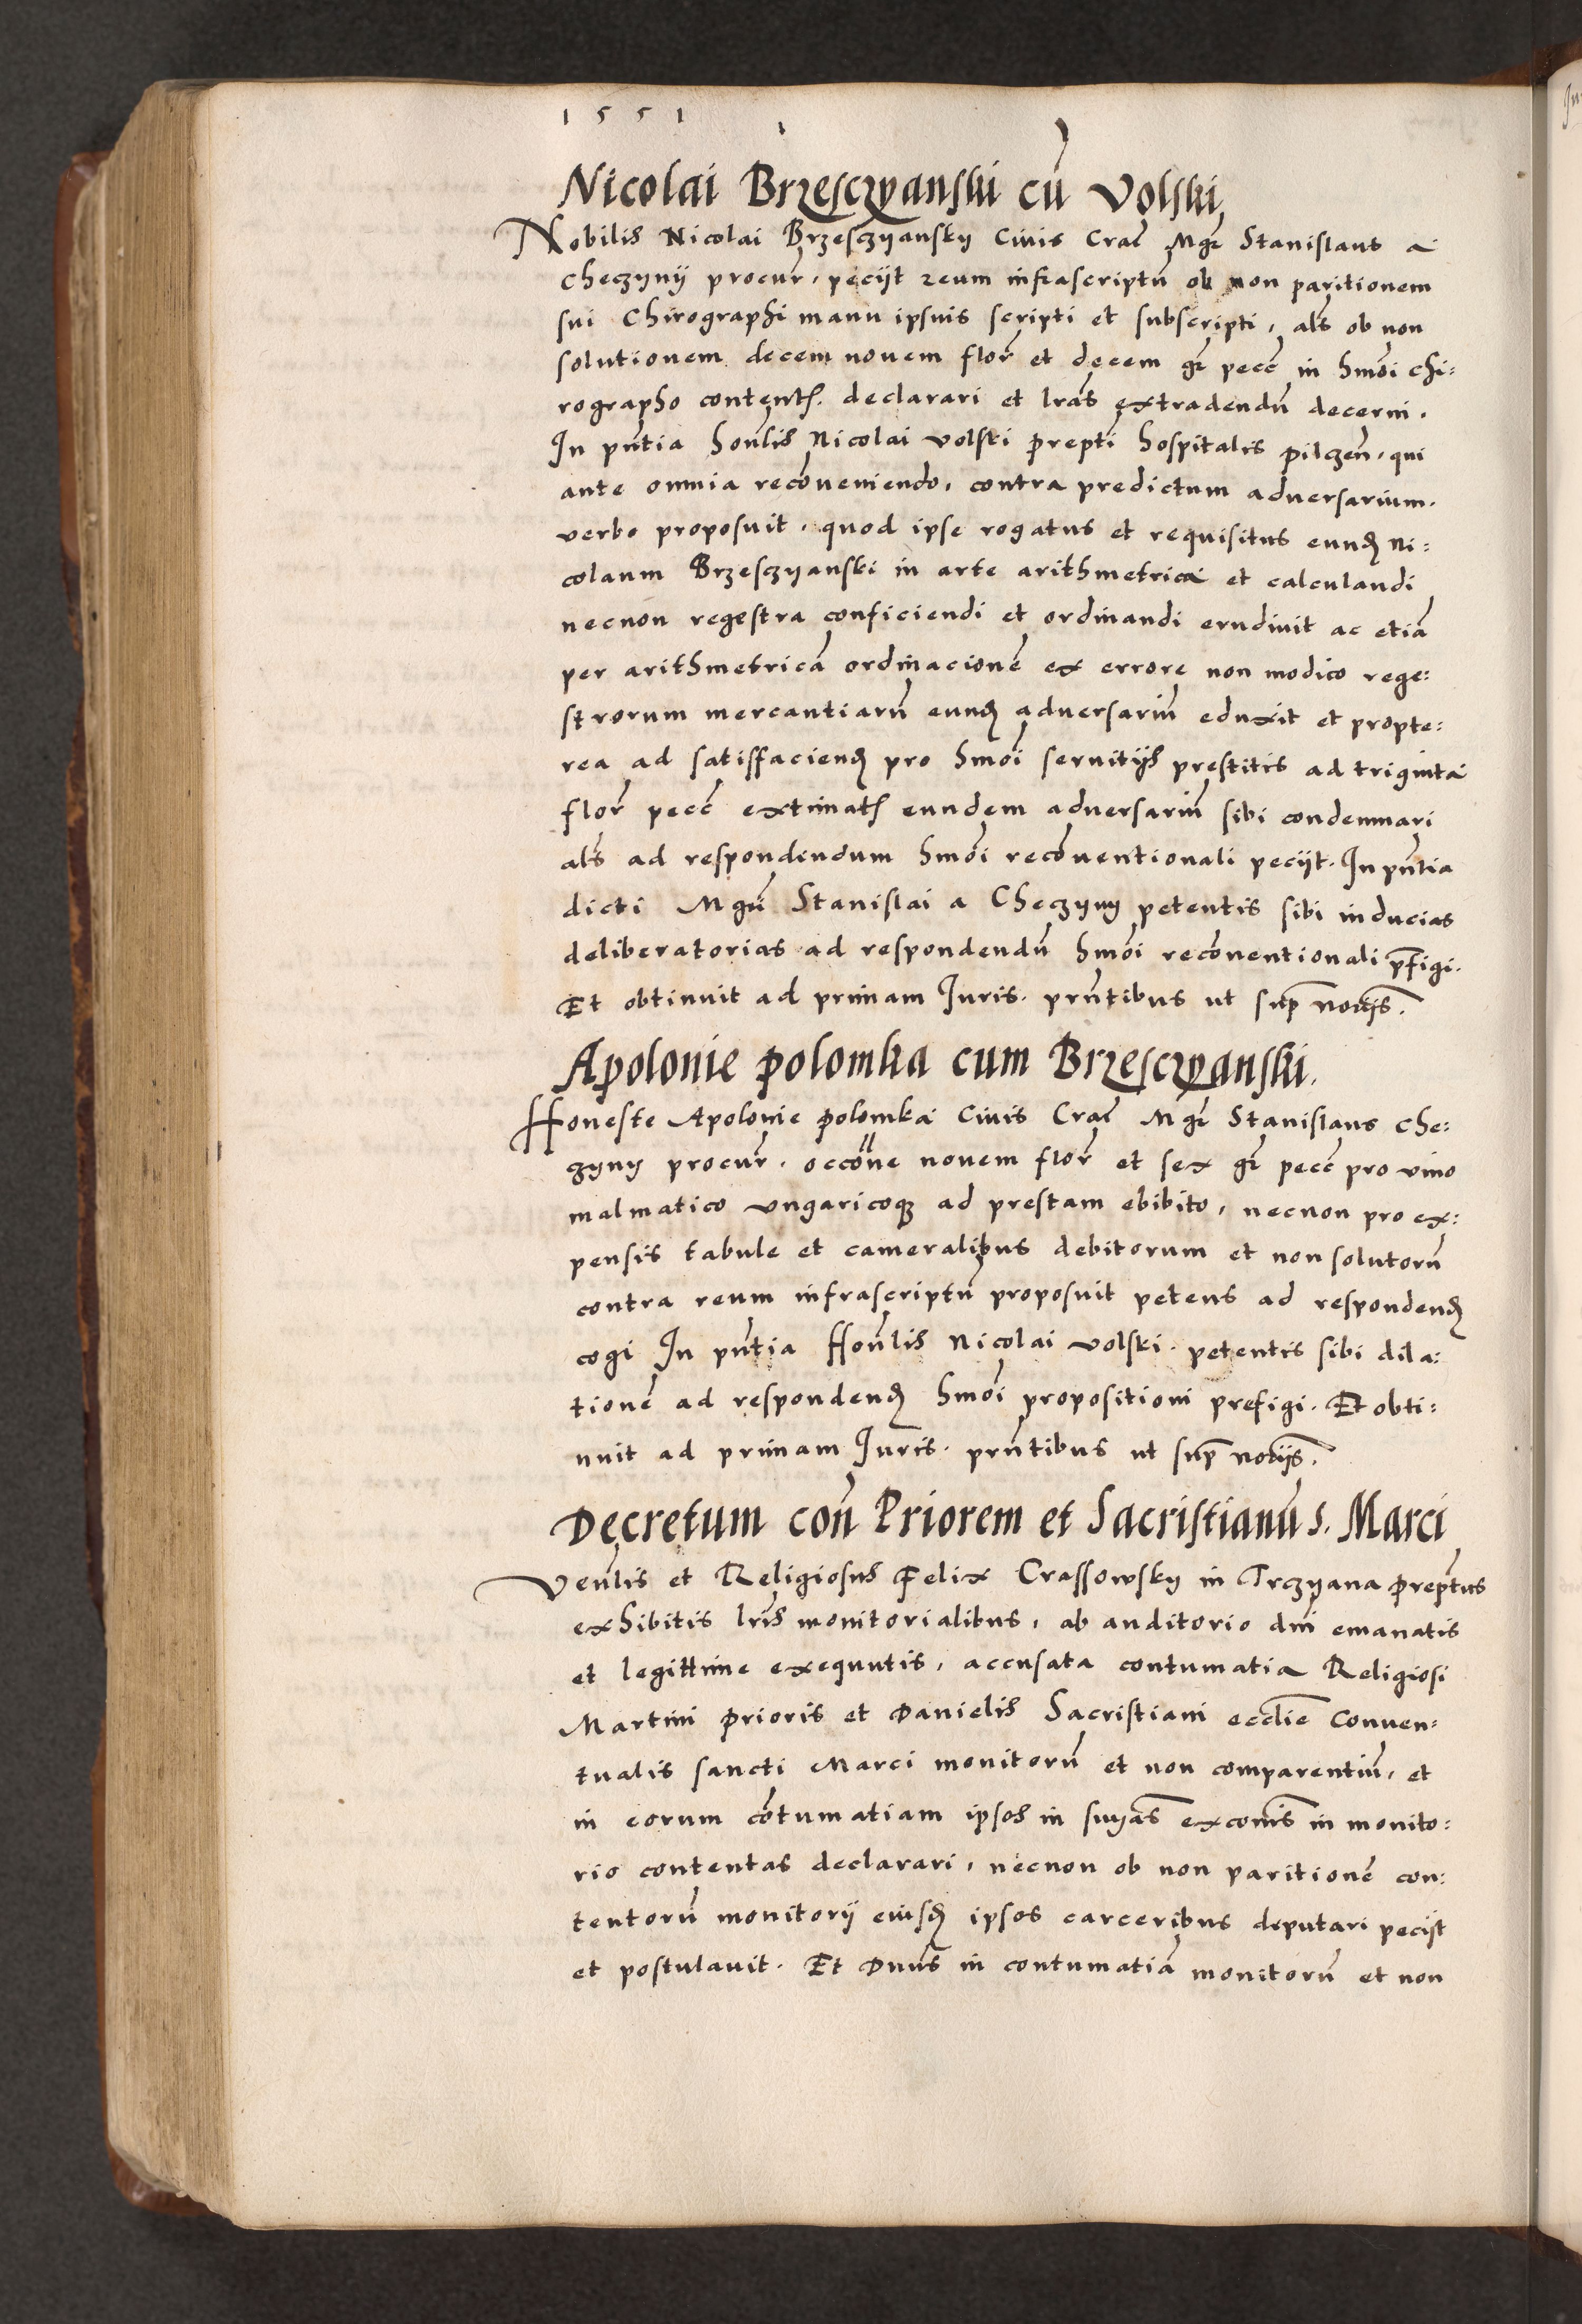 1551
Nicolai Brzesczyanski cū Volski
Nobilis Nicolai Brzesczyansky Civis Crac̄ Mgr̄ Stanislaus a
Checzynÿ procur̄, peciit reum infrascriptū ob non paritionem
sui Chirographi manu ipsius scripti et subscripti, als̄ ob non
solutionem decem novem flor̄ et decem gr̄ pecc̄ in hmōi chi:
rographo content. declarari et lrās extradendū decerni.
In pn̄tia honl̄is Nicolai Volski prepti hospitalis pilczen̄. qui
ante omnia recōveniendo, contra predictum adversarium.
verbo proposuit. quod ipse rogatus et requisitus eund Ni:
colaum Brzesczyanski in arte arithmetrica et calculandi
necnon regestra conficiendi et ordinandi erudivit ac etiā
per arithmetricā ordinacionē ex errore non modico rege:
strorum mercantiarū eund adversariū eduxit et propte:
rea ad satisfaciend pro hmōi servitiis prestitis ad triginta
flor̄ pecc̄ extimat eundem adversariū sibi condemnari
als̄ ad respondendum hmōi recōventionali peciit. In pn̄tia
dicti Mgri Stanislai a Checzyny petentis sibi inducias
deliberatorias ad respondendū hmōi recōventionali p̄figi.
Et obtinuit ad primam Juris. prn̄tibus ut sup̄ notiis.
Apolonie polomka cum Brzesczyanski.
Honeste Apolonie polomka Civis Crac̄ Mgr̄ Stanislaus Che:
zyny procur̄. occōne novem flor̄ et sex gr̄ pecc̄ pro vino
malmatico ungaricoq ad prestam ebibito, necnon pro ex:
pensis tabule et cameralibus debitorum et non solutorū
contra reum infrascriptū proposuit petens ad respondend
cogi In pn̄tia Honl̄is Nicolai Volski. petentis sibi dila:
tionē ad respondend hmōi propositioni prefigi. Et obti:
nuit ad primam Juris. prn̄tibus ut sup̄ notiis.
Decretum con̄ Priorem et Sacristianū s. Marci
Venl̄is et Religiosus Felix Crassowsky in Trczyana preptus
exhibitis lr̄is monitorialibus, ab auditorio dn̄i emanatis
et legittime exequutis, accusata contumatia Religiosi
Martini prioris et Danielis Sacristiani eccl̄ie Conven:
tualis sancti Marci monitorū et non comparentiū, et
in eorum cōtumatiam ipsos in snīas excom̄is in monito:
rio contentas declarari, necnon ob non paritionē con:
tentorū monitorÿ eiusd ipsos carceribus deputari peciit
et postulavit. Et Dn̄us in contumatiā monitorū et non